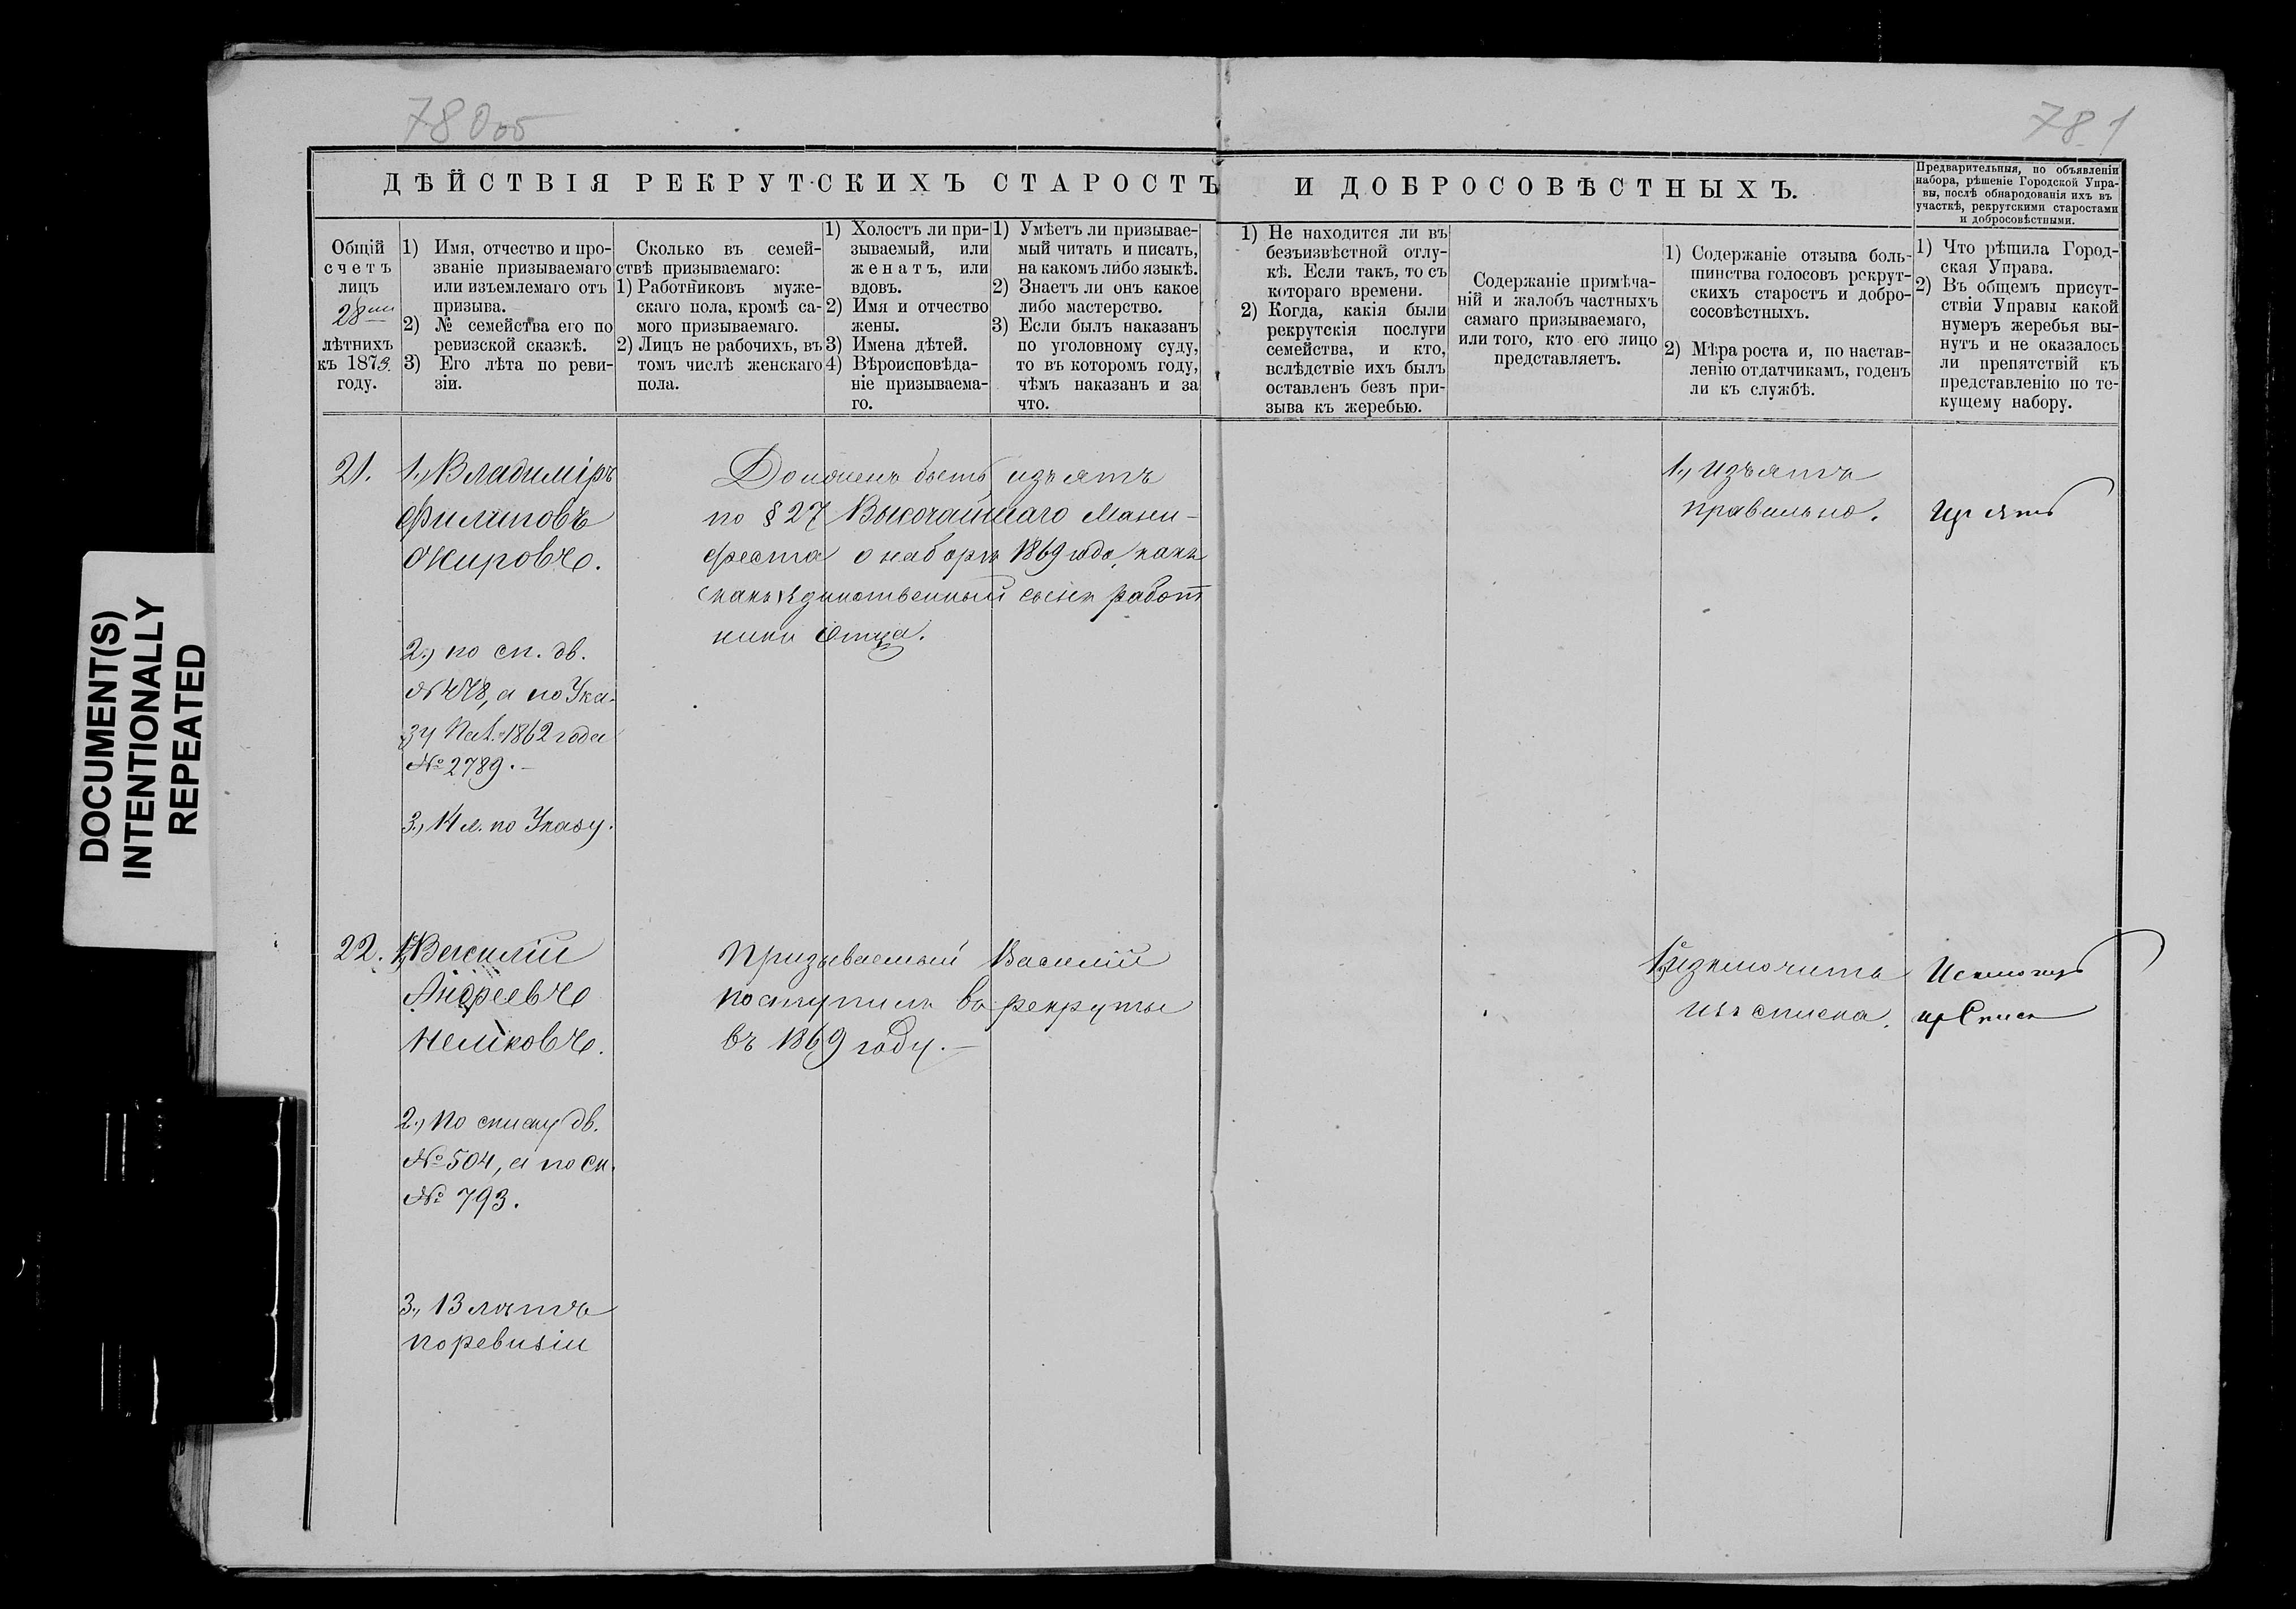 78 об
781
ДѢЙСТВІЯ РЕКРУТСКИХЪ СТАРОСТЪ И ДОБРОСОВѢСТНЫХЪ.
Предварительныя, по объявленіи
набора, рѣшеніе Городской Упра-
вы, послѣ обнародованія ихъ въ
участкѣ, рекрутскими старостами
и добросовѣстными.
Общій
счетъ
лицъ
28ми
лѣтнихъ
къ 1873
году.
1) Имя, отчество и про-
званіе призываемаго
или изъемлемаго отъ
призыва.
2) № семейства его по
ревизской сказкѣ.
3) Его лѣта по реви-
зіи.
Сколько въ семей-
ствѣ призываемаго:
1) Работниковъ муже-
скаго пола, кромѣ са-
мого призываемаго.
2) Лицъ не рабочихъ, въ
томъ числѣ женскаго
пола.
1) Холостъ ли при-
зываемый, или
женатъ, или
вдовъ.
2) Имя и отчество
жены.
3) Имена дѣтей.
4) Вѣроисповѣда-
ніе призываема-
го.
1) Умѣетъ ли призывае-
мый читать и писать,
на какомъ либо языкѣ.
2) Знаетъ ли онъ какое
либо мастерство.
3) Если былъ наказанъ
по уголовному суду,
то въ которомъ году,
чѣмъ наказанъ и за
что.
1) Не находится ли въ
безъизвѣстной отлу-
кѣ. Если такъ, то съ
котораго времени.
2) Когда, какія были
рекрутскія послуги
семейства, и кто,
вслѣдствіе ихъ былъ
оставленъ безъ при-
зыва къ жеребью.
Содержаніе примѣча-
ній и жалобъ частныхъ
самаго призываемаго,
или того, кто его лицо
представляетъ.
1) Содержаніе отзыва боль-
шинства голосовъ рекрут-
скихъ старостъ и добро-
сосовѣстныхъ.
2) Мѣра роста и, по настав-
ленію отдатчикамъ, годенъ
ли къ службѣ.
1) Что рѣшила Город-
ская Управа.
2) Въ общемъ присут-
ствіи Управы какой
нумеръ жеребья вы-
нутъ и не оказалось
ли препятствій къ
представленію по те-
кущему набору.
21.
1., Владиміръ
Филиповъ
Жировъ.
2., по сп. дв.
№ 478, а по Ука-
зу Пал. 1862 года
№ 2789. —
3., 14 л. по Указу.
Долженъ быть изъятъ
по § 27 Высочайшаго Мани-
феста о наборѣ 1869 года, какъ
какъ единственный сынъ работ
ника отца.
1., изъятъ
правильно.
Изъять
22.
1., Василій
Андреевъ
2., по списку дв.
№ 504, а по ск.
№ 793.
3., 13 лѣтъ
по ревизіи
Призываемый Василій
поступилъ въ рекруты
въ 1869 году. —
1., изключить
изъ списка.
Исключить
из Списк
DOCUMENT(S)
INTENTIONALLY
REPEATED